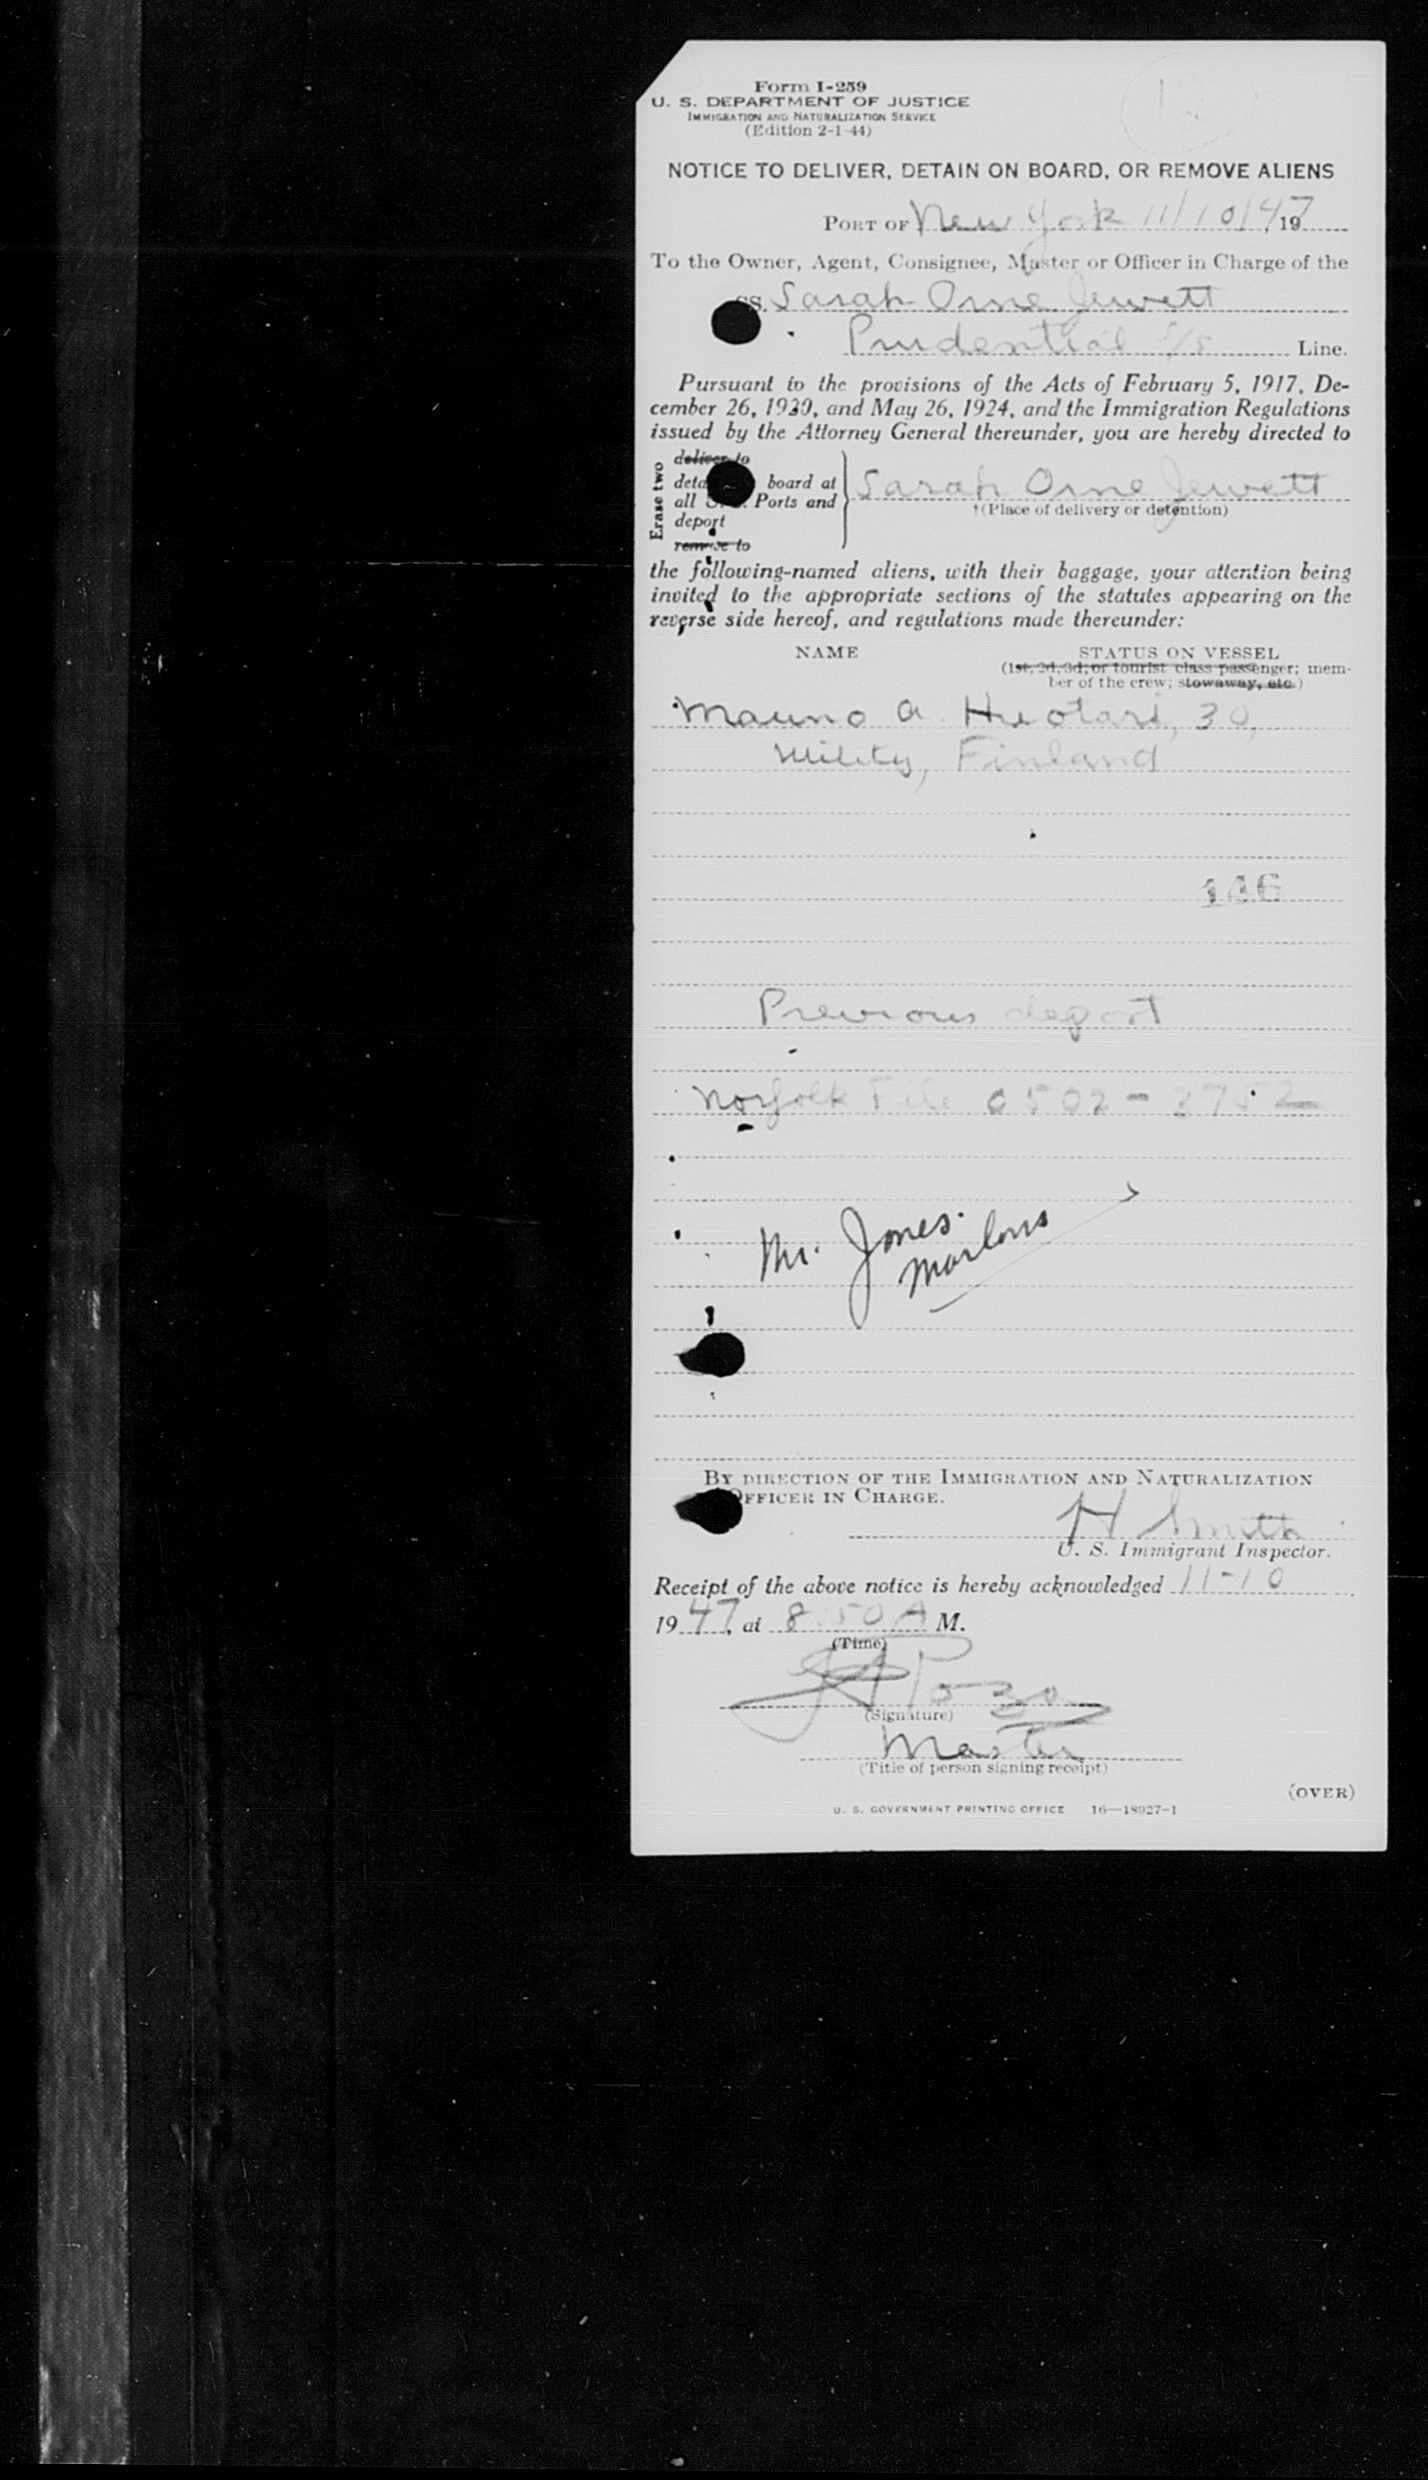 Form I-259
U. S. DEPARTMENT OF JUSTICE
IMMIGRATION AND NATURALIZATION SERVICE
(Edition 2-1-44)
NOTICE TO DELIVER, DETAIN ON BOARD, OR REMOVE ALIENS
PORT OF New York 11/10/47, 19
To the Owner, Agent, Consignee, Master or Officer in Charge of the
SS. Sarah Orne Jewett
Prudential S/S Line.
Pursuant to the provisions of the Acts of February 5, 1917, De-
cember 26, 1920, and May 26, 1924, and the Immigration Regulations
issued by the Attorney General thereunder, you are hereby directed to
Erase two
deliver to
board at
all Ports and
deport
remove to
Sarah Orne Jewett
†(Place of delivery or detention)
the following-named aliens, with their baggage, your attention being
invited to the appropriate sections of the statutes appearing on the
reverse side hereof, and regulations made thereunder:
NAME STATUS ON VESSEL
(1st, 2d, 3d, or tourist class passenger; mem-
ber of the crew; stowaway, etc.)
Mauno A. Huotari, 30,
Utility, Finland
Previous deport
Norfolk File 0502-3752
Mr. Jones.
BY DIRECTION OF THE IMMIGRATION AND NATURALIZATION
OFFICER IN CHARGE.
H Smith
U. S. Immigrant Inspector.
Receipt of the above notice is hereby acknowledged 11-10
1947, at 8:50 A M.
(Time)
(Signature)
Master
(Title of person signing receipt)
(OVER)
U. S. GOVERNMENT PRINTING OFFICE 16—18927-1